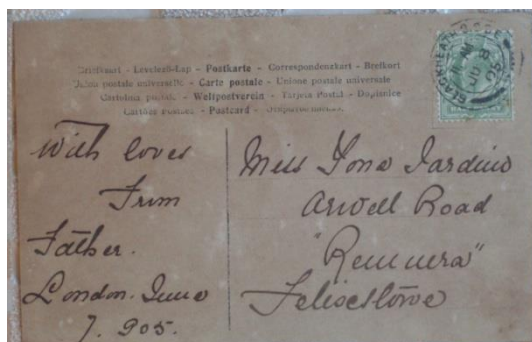 Briefkaart - Levelezö-Lap - Postkarte - Correspondenzkart - Brefkort
Union postale universelle - Carte postale - Unione postale universale
Cartolina postale - Weltpostverein - Tarjeta Postal - Dopisnice
Postcard
BLACKHEATH
JU 8
05
With love
From
Father.
London. June
7. 905.
Miss Iona Jardine
Arwell Road
"Remuera"
Felixstowe